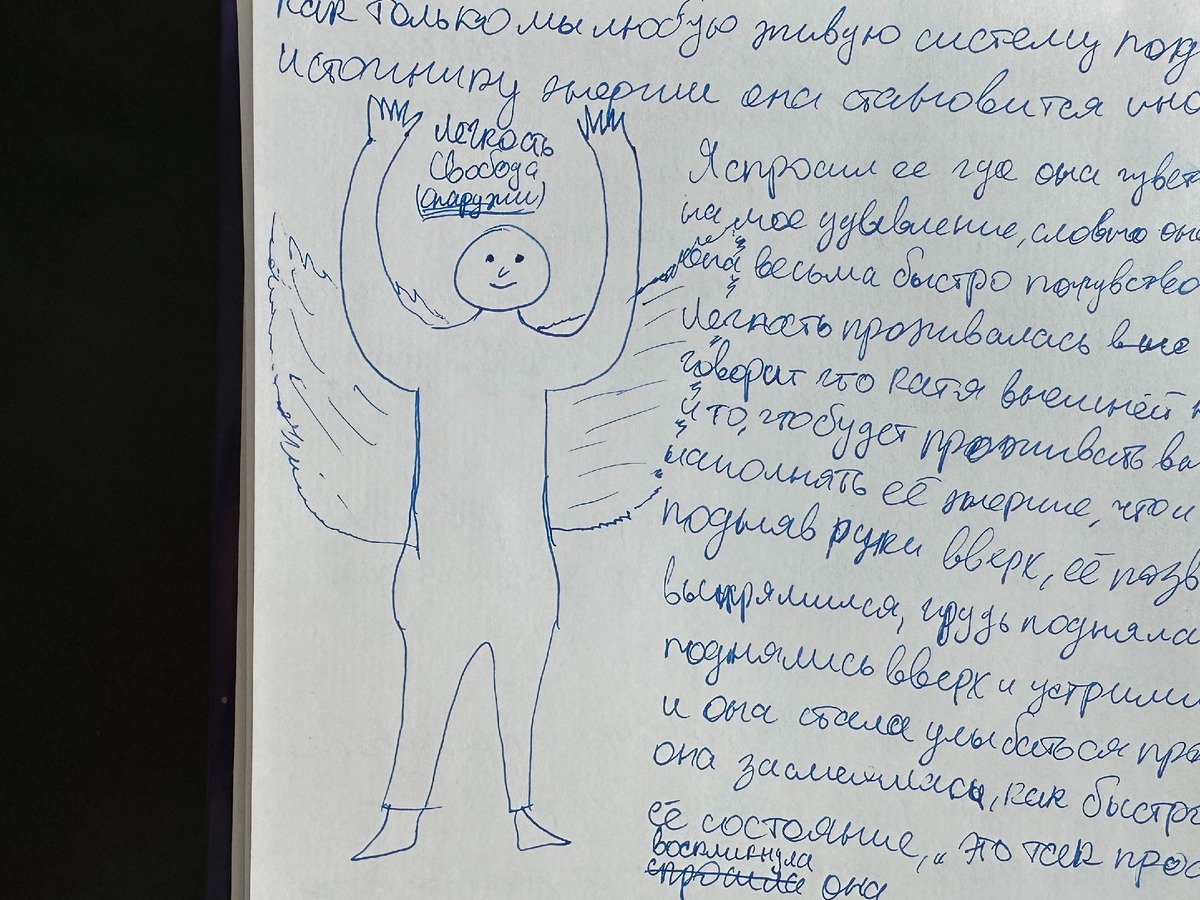 как только мы любую живую систему под
источнику энергии она становится ино
Легкость
Свобода
(снаружи)
Я спросил ее где она чувст
на мое удивление, словно он
она весьма быстро почувство
Легкость проживалась вне
говорит что Катя внешней
и то, что будет проживать ва
наполнять её энергие, что и
подыняв руки вверх, её позв
выпрямился, грудь подняласа
поднялись вверх и устрими
и она стала улыбаться пра
она засмеялась, как быстро
её состояние, „ это так прос
воскликнула
спросила она